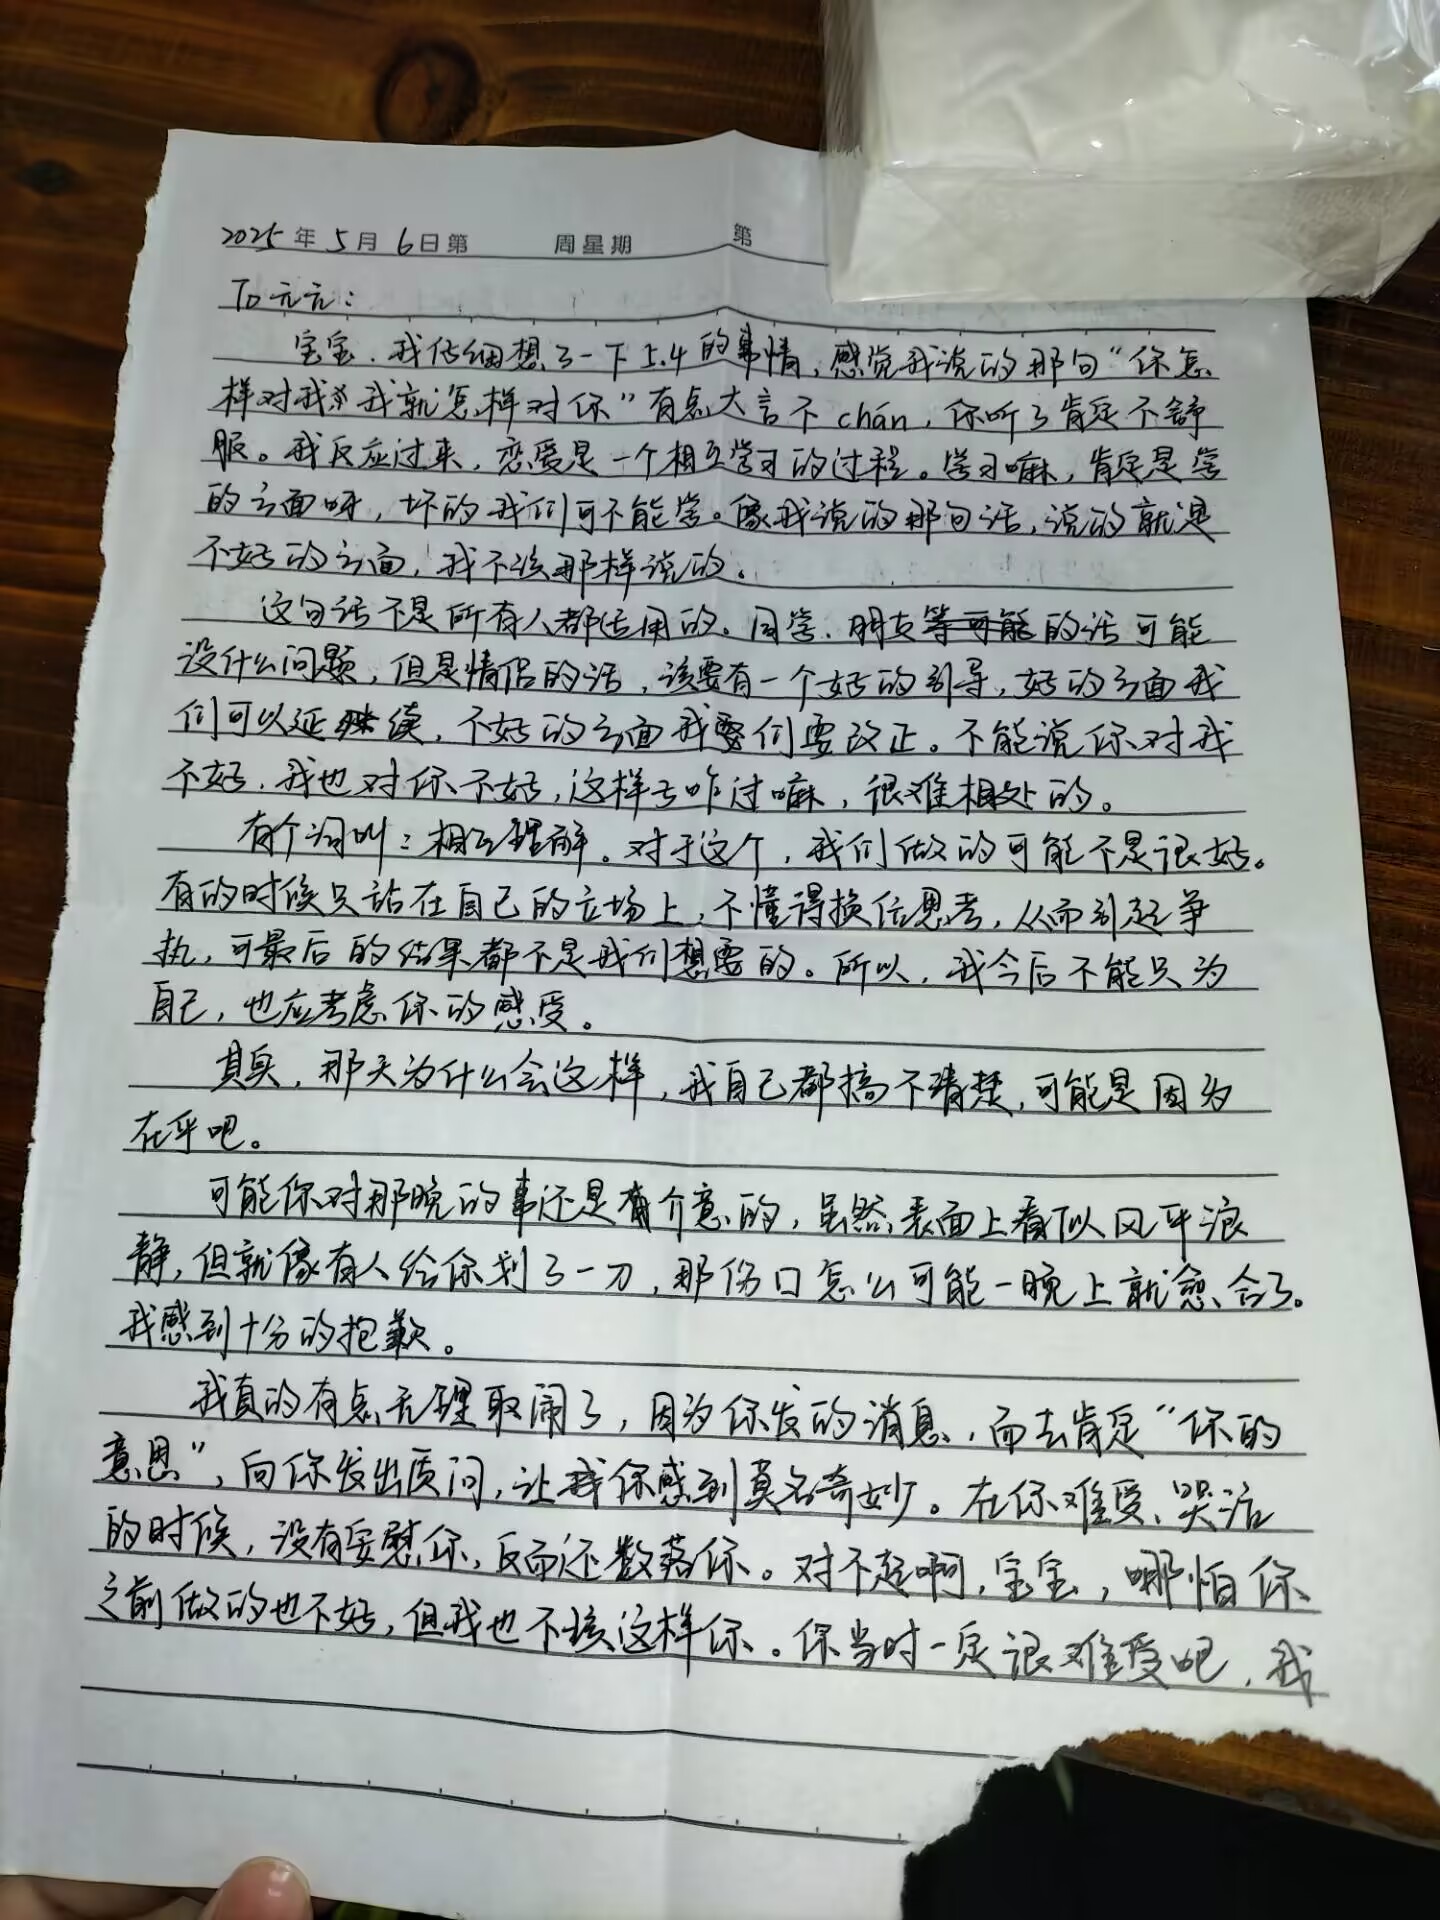 2025年5月6日第 周星期 第
To 元元:
宝宝,我仔细想了一下5.4的事情,感觉我说的那句“你怎
样对我,我就怎样对你”有点大言不chán,你听了肯定不舒
服。我反应过来,恋爱是一个相互学习的过程。学习嘛,肯定是学
的方面呀,坏的我们可不能学。像我说的那句话,说的就是
不好的方面,我不该那样说的。
这句话不是所有人都适用的。同学、朋友等可能的话可能
没什么问题,但是情侣的话,该要有一个好的引导,好的方面我
们可以延续,不好的方面我们要改正。不能说你对我
不好,我也对你不好,这样去咋过嘛,很难相处的。
有个词叫:相互理解。对于这个,我们做的可能不是很好。
有的时候只站在自己的立场上,不懂得换位思考,从而引起争
执,可最后的结果都不是我们想要的。所以,我今后不能只为
自己,也应考虑你的感受。
其实,那天为什么会这样,我自己都搞不清楚,可能是因为
在乎吧。
可能你对那晚的事还是有介意的,虽然表面上看似风平浪
静,但就像有人给你划了一刀,那伤口怎么可能一晚上就愈合了。
我感到十分的抱歉。
我真的有点无理取闹了,因为你发的消息,而去肯定“你的
意思”,向你发出质问,让你感到莫名奇妙。在你难受、哭泣
的时候,没有安慰你,反而还数落你。对不起啊,宝宝,哪怕你
之前做的也不好,但我也不该这样你。你当时一定很难受吧,我